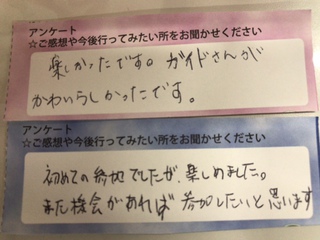 アンケート
☆ご感想や今後行ってみたい所をお聞かせください
楽しかったです。ガイドさんが
かわいらしかったです。
アンケート
☆ご感想や今後行ってみたい所をお聞かせください
初めての参地でしたが、楽しめました。
また機会があれば参加したいと思います